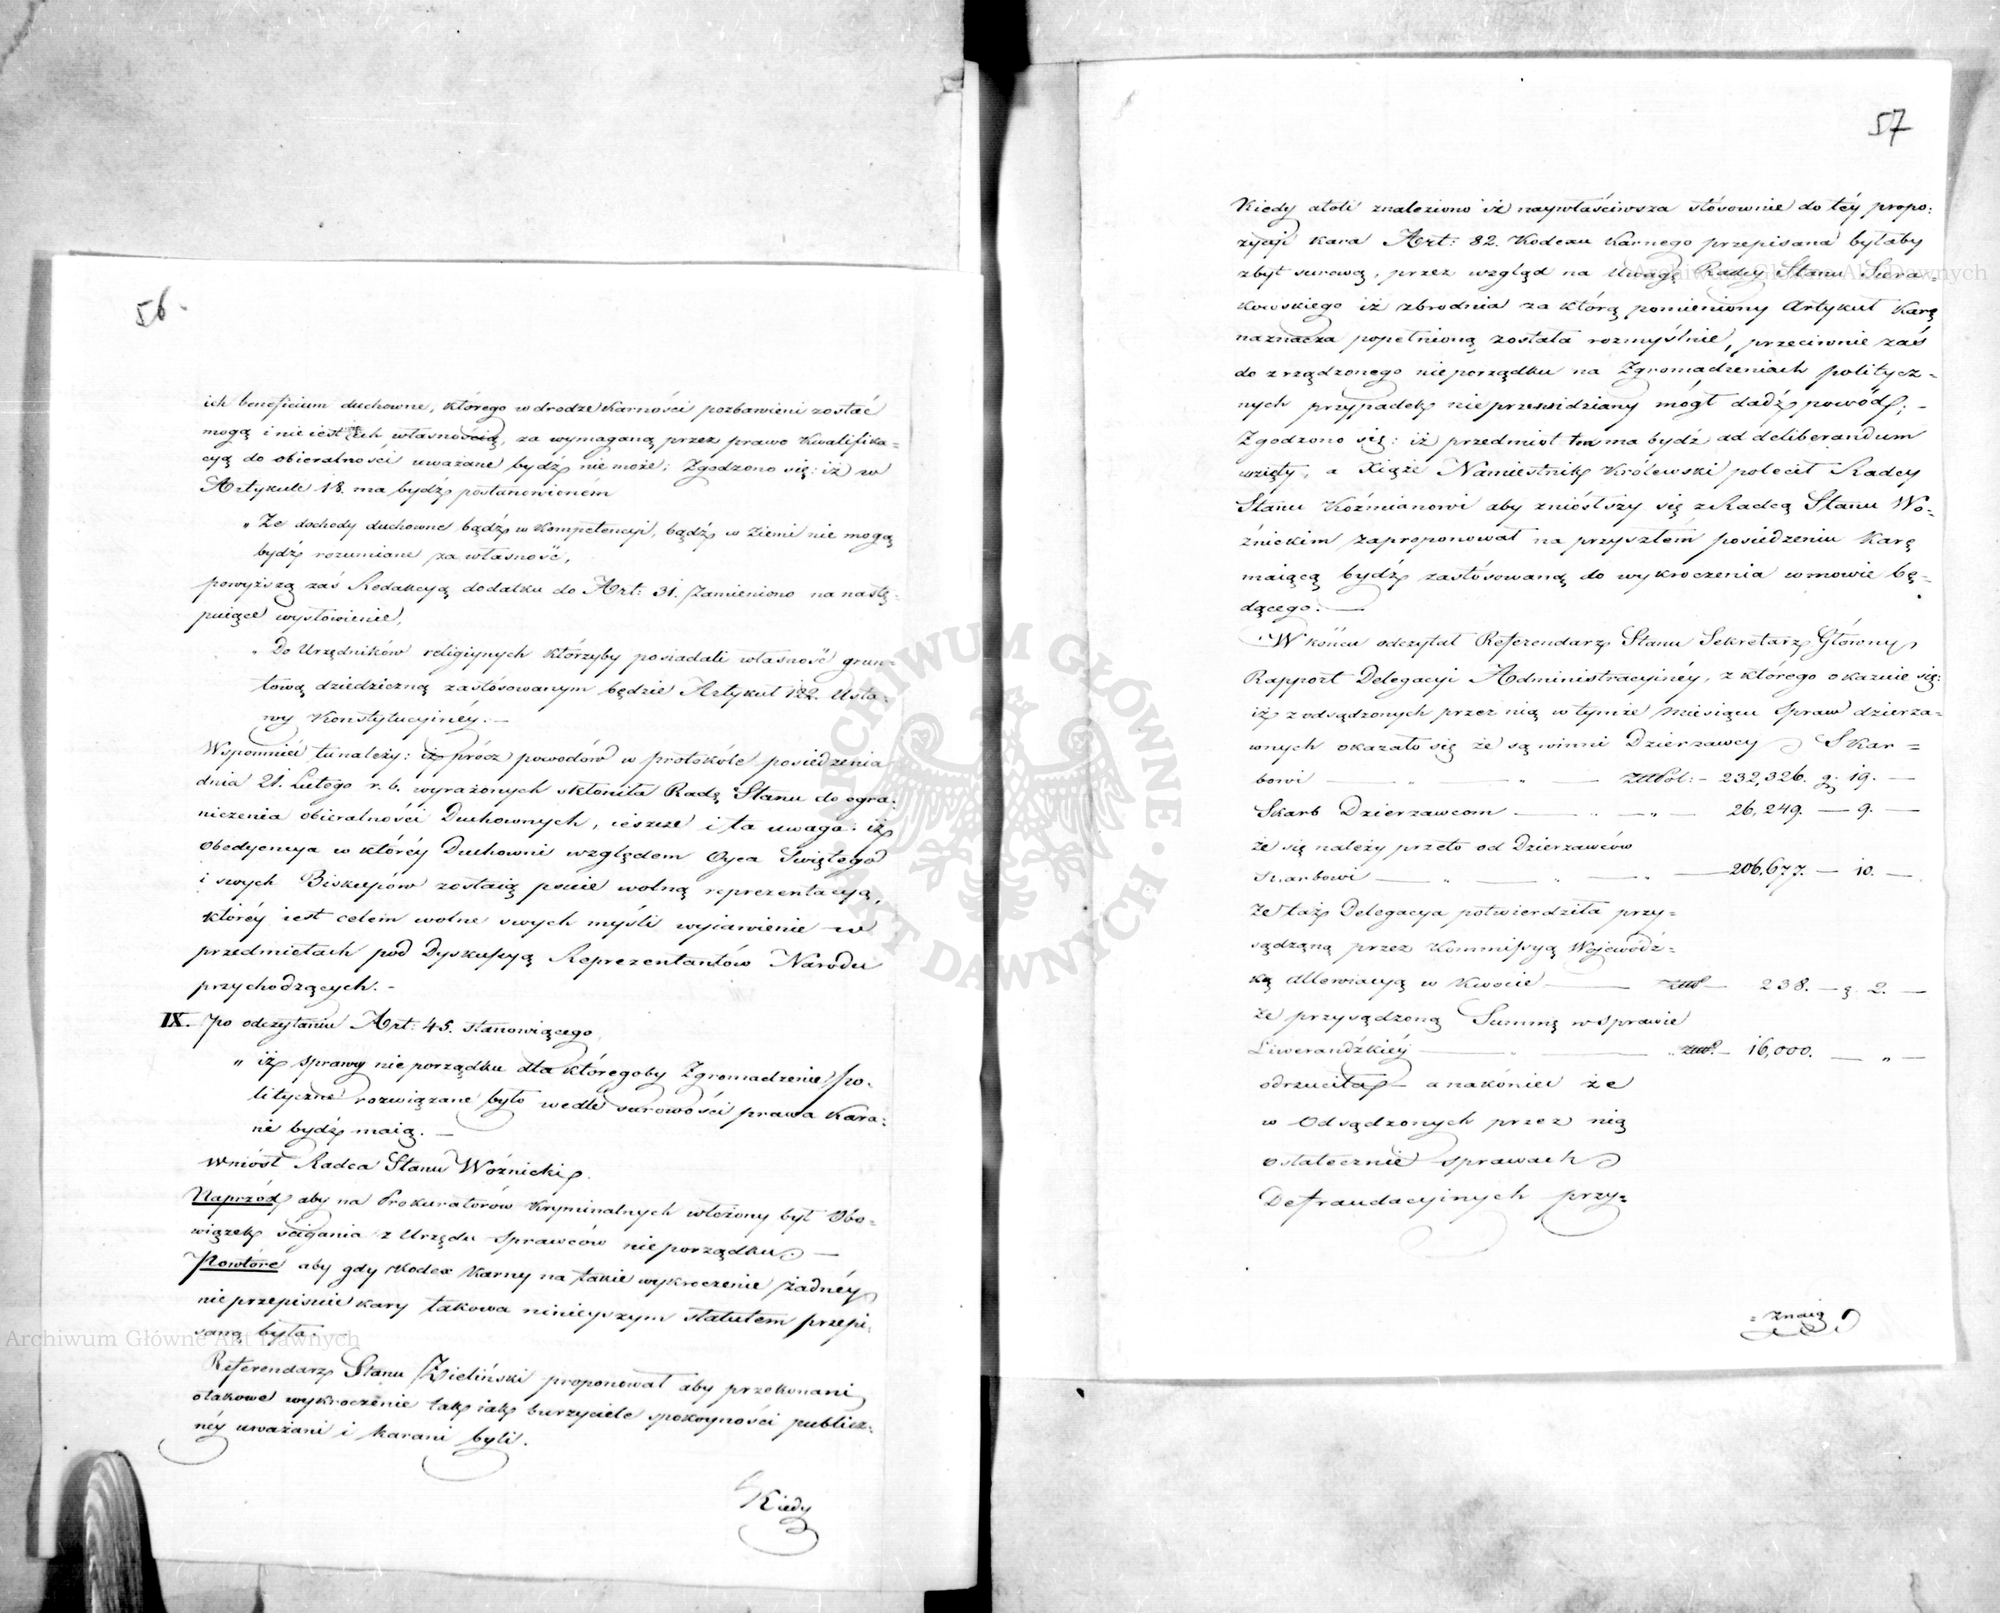 56.
ich beneficium duchowne, którego w drodze karności pozbawieni zostać
mogą i nie iest ich własnością, za wymaganą przez prawo kwalifika=
cyą do obieralności uważane bydź nie może; Zgodzono się: iż w
Artykule 18. ma bydź postanowieném
„ Że dochody duchowne bądź w kompetencyi, bądź w ziemi nie mogą
bydź rozumiane za własność,
powyższą zaś Redakcyą dodatku do Art: 31. zamieniono na nastę=
puiące wysłowienie,
„ Do Urzędników religiynych którzyby posiadali własność grun=
tową dziedziczną zastósowanym będzie Artykuł 122. Usta=
wy Konstytucyinéy. —
Wspomnieć tu należy: iż prócz powodów w protokóle posiedzenia
dnia 21. Lutego r. b. wyrażonych skłoniła Radę Stanu do ogra=
niczenia obieralności Duchownych, ieszcze i ta uwaga: iż
Obedyencya w któréy Duchowni względem Oyca Świętego
i swych Biskupów zostaią psuie wolną reprezentacyą,
któréy iest celem wolne swych myśli wyiawienie w
przedmiotach pod Dyskussyą Reprezentantów Narodu
przychodzących. -
IX. Po odczytaniu Art: 45. stanowiącego
„ iż sprawcy nieporządku dla któregoby Zgromadzenie Po=
lityczne rozwiązane było wedle surowości prawa kara=
ni bydź maią. —
Wniósł Radca Stanu Woźnicki.
Naprzód aby na Prokuratorów Kryminalnych włożony był Obo=
wiązek ścigania z Urzędu sprawców nieporządku. —
Powtóre aby gdy Kodex Karny na takie wykroczenie żadnéy
nie przepisuie kary takowa ninieyszym statutem przepi=
saną była.
Referendarz Stanu Zieliński proponował aby przekonani
o takowe wykroczenie tak iak burzyciele spokoyności publicz=
néy uważani i karani byli.
Kiedy
57
Kiedy atoli znaleziono iż naywłaściwsza stósownie do téy propo=
zycyi kara Art: 82. Kodexu Karnego przepisana byłaby
zbyt surową, przez wzgląd na Uwagę Radcy Stanu Siera=
kowskiego iż zbrodnia za którą pomieniony Artykuł Karę
naznacza popełnioną została rozmyślnie, przeciwnie zaś
do zrządzonego nieporządku na Zgromadzeniach politycz=
nych przypadek nieprzewidziany mógł dadź powód; -
Zgodzono się: iż przedmiot ten ma bydź ad deliberandum
wzięty, a Xiąże Namiestnik Królewski polecił Radcy
Stanu Koźmianowi aby zniósłszy się z Radcą Stanu Wo=
źnickim zaproponował na przyszłém posiedzeniu Karę
maiącą bydź zastósowaną do wykroczenia w mowie bę=
dącego. —
W końcu odczytał Referendarz Stanu Sekretarz Główny
Rapport Delegacyi Administracyinéy, z którego okazuie się:
iż z odsądzonych przez nią w tymże Miesiącu Spraw dzierża=
wnych okazało się że są winni Dzierżawcy Skar=
bowi — „ — „ — złł Pol: - 232,326. g. 19. —
Skarb Dzierżawcom — „ — „ — 26,249. — 9. —
że się należy przeto od Dzierżawców
Skarbowi — „ — „ — 206,677. — 10. —
Że taż Delegacya potwierdziła przy=
sądzaną przez Kommissyą Wojewódz=
ką Allewiacyą w Kwocie — złłP — 238. — g. 2. —
że przysądzoną Summę w sprawie
Liwerandzkiéy — „ — złłP. — 16,000. — „ —
odrzuciła — a nakoniec że
w Odsądzonych przez nią
ostatecznie sprawach
Defraudacyinych przy=
= znaią
ARCHIWUM GŁÓWNE AKT DAWNYCH
Archiwum Główne Akt Dawnych
Archiwum Główne Akt Dawnych